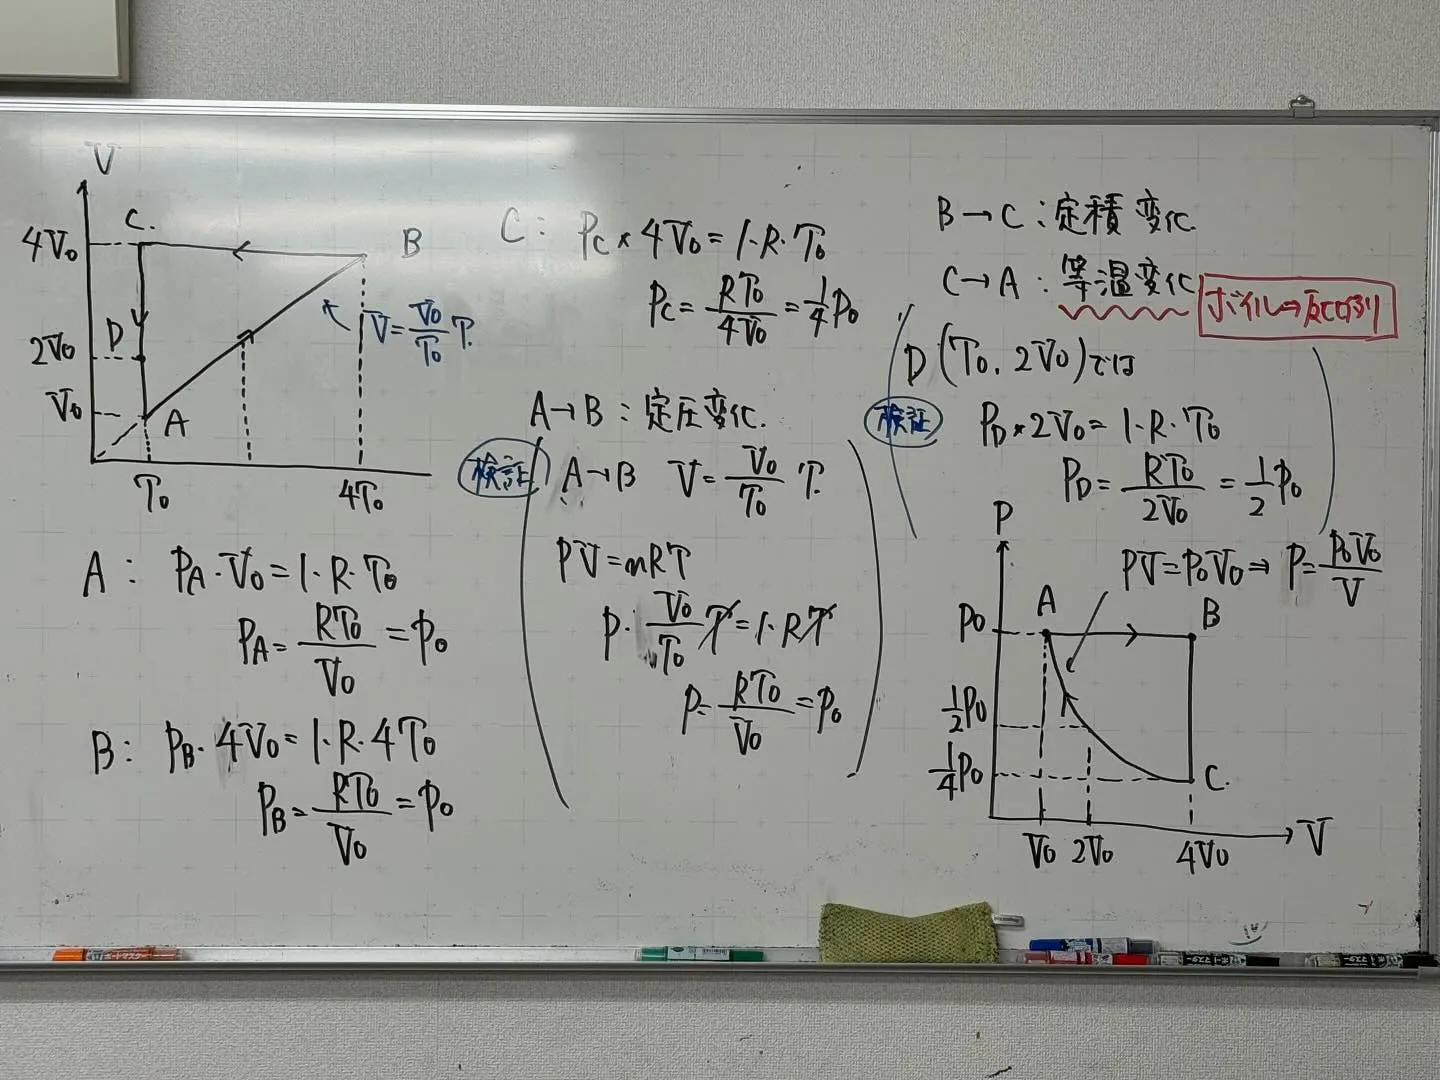 V
4V₀
C.
B
D
2V₀
V₀
A
T₀
4T₀
V=V₀/T₀ T.
A: P_A・V₀=1・R・T₀
P_A=RT₀/V₀=P₀
B: P_B・4V₀=1・R・4T₀
P_B=RT₀/V₀=P₀
C: P_C×4V₀=1・R・T₀
P_C=RT₀/4V₀=1/4P₀
A→B:定圧変化.
検証
A→B V=V₀/T₀ T.
PV=nRT
P・V₀/T₀ T=1・RT
P=RT₀/V₀=P₀
B→C:定積変化.
C→A:等温変化
ボイル⇒反比例
D(T₀, 2V₀)では
検証
P_D×2V₀=1・R・T₀
P_D=RT₀/2V₀=1/2P₀
PV=P₀V₀⇒P=P₀V₀/V
P
P₀
A
B
1/2P₀
1/4P₀
C.
V₀
2V₀
4V₀
V